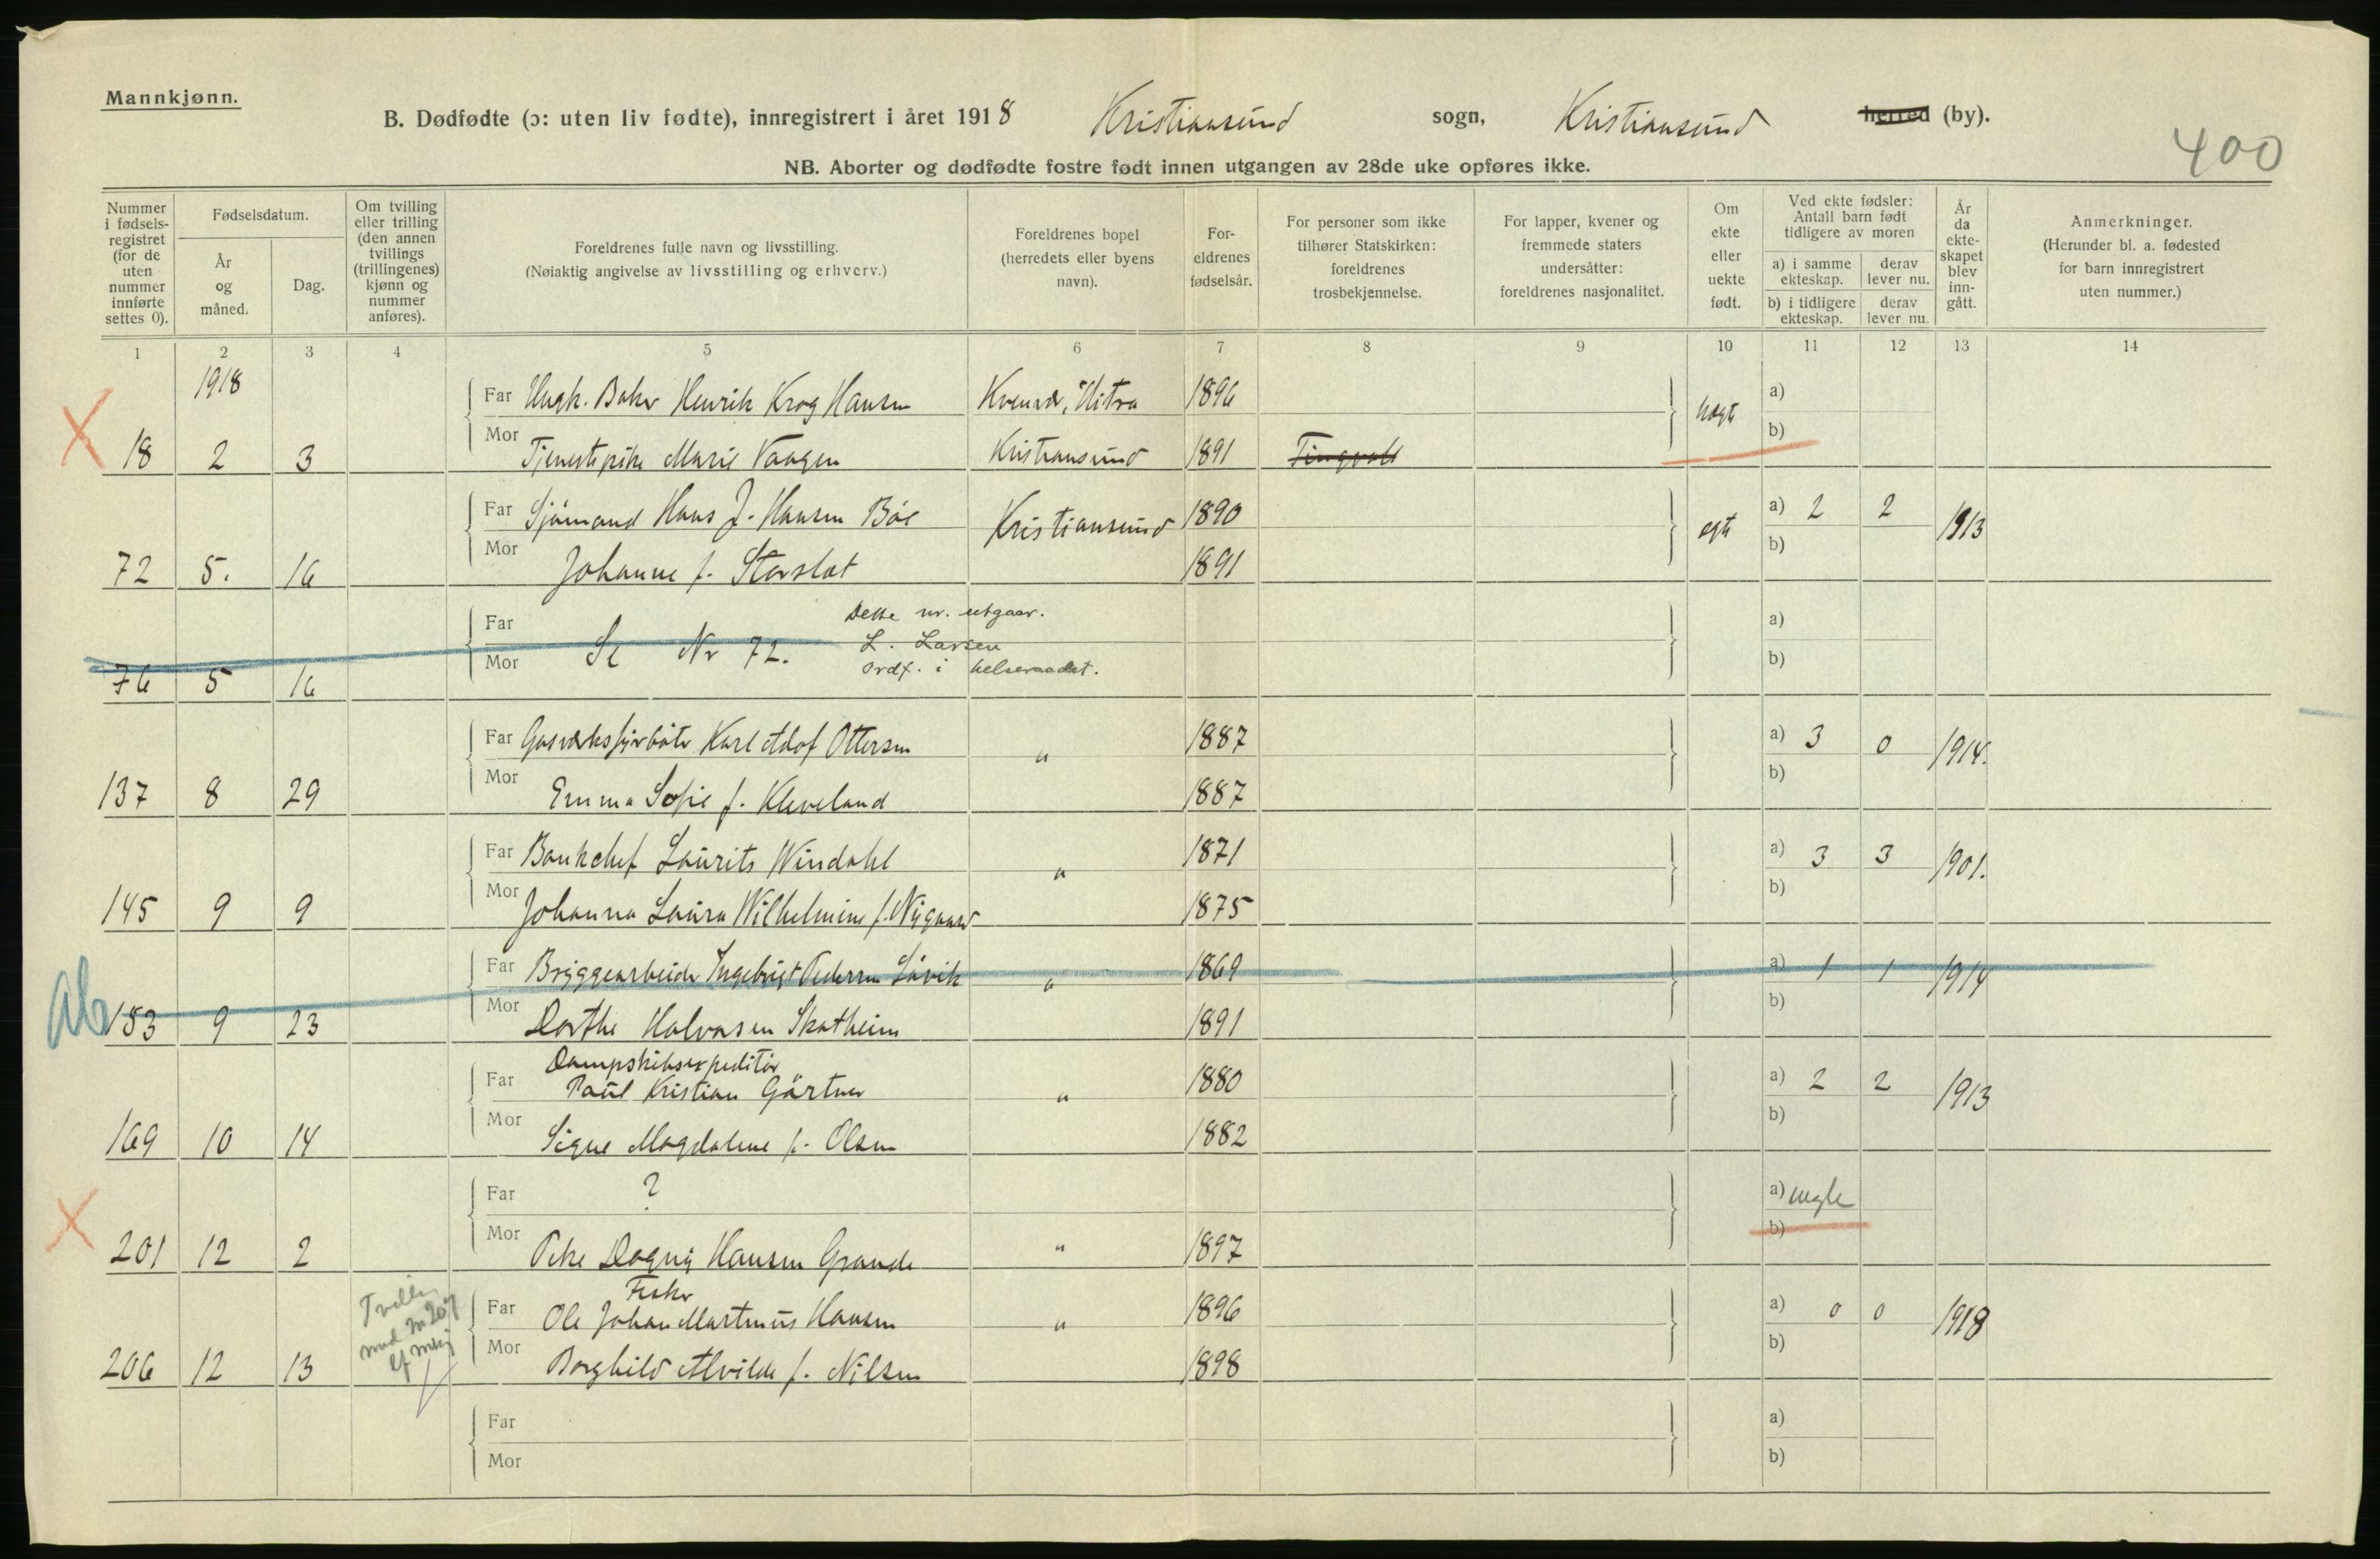 Mannkjønn.
B. Dødfødte (ɔ: uten liv fødte), innregistrert i året 1918 Kristiansund sogn, Kristiansund herred (by).
400
NB. Aborter og dødfødte fostre født innen utgangen av 28de uke opføres ikke.
Nummer i fødsels-registret (for de uten nummer innførte settes 0).
Fødselsdatum.
År og måned.
Dag.
Om tvilling eller trilling (den annen tvillings (trillingenes) kjønn og nummer anføres).
Foreldrenes fulle navn og livsstilling.
(Nøiaktig angivelse av livsstilling og erhverv.)
Foreldrenes bopel (herredets eller byens navn).
For-eldrenes fødselsår.
For personer som ikke tilhører Statskirken: foreldrenes trosbekjennelse.
For lapper, kvener og fremmede staters undersåtter: foreldrenes nasjonalitet.
Om ekte eller uekte født.
Ved ekte fødsler: Antall barn født tidligere av moren
a) i samme ekteskap.
derav lever nu.
b) i tidligere ekteskap.
derav lever nu.
År da ekte-skapet blev inn-gått.
Anmerkninger.
(Herunder bl. a. fødested for barn innregistrert uten nummer.)
1 2 3 4 5 6 7 8 9 10 11 12 13 14
1918
Far Ungk. Baker Henrik Krog Hansen Kvenvær, Hitra 1896 uegte a)
18 2 3 Mor Tjenestepike Marie Vaagen Kristiansund 1891 Tingvoll b)
Far Sjømand Hans J. Hansen Böe Kristiansund 1890 egte a) 2 2 1913
72 5. 16 Mor Johanne f. Storslet 1891 b)
Far Dette nr. utgaar. a)
Se Nr 72. L. Larsen
76 5 16 Mor ordf. i helseraadet. b)
Far Gasverksfyrböter Karl Adof Ottersen " 1887 a) 3 0 1914.
137 8 29 Mor Emma Sofie f. Kleveland 1887 b)
Far Bankchef Laurits Windahl " 1871 a) 3 3 1901.
145 9 9 Mor Johanna Laura Wilhelmine f. Nygaard 1875 b)
Far Bryggearbeider Ingebrigt Pedersen Lövik " 1869 a) 1 1 1914
Ab 153 9 23 Mor Dorthe Halvorsen Skotheim 1891 b)
Dampskibsexpeditör
Far Paul Kristian Gärtner " 1880 a) 2 2 1913
169 10 14 Mor Signe Magdalene f. Olsen 1882 b)
Far ? a) uegte
201 12 2 Mor Pike Dagny Hansen Grande " 1897 b)
Fisker
Far Ole Johan Martinus Hansen " 1896 a) 0 0 1918
206 12 13 Mor Borghild Alvilde f. Nilsen 1898 b)
Far a)
Mor b)